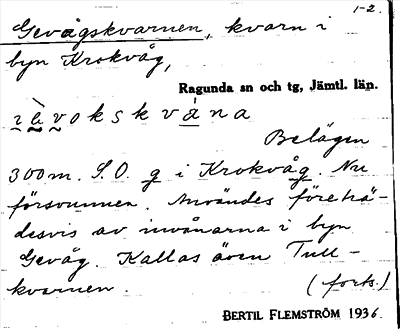 1-2.
Gevågskvarnen, kvarn i
byn Krokvåg,
Ragunda sn och tg, Jämtl. län.
Belägen
300m. S.O. g i Krokvåg. Nu
försvunnen. Användes företrä-
desvis av invånarna i byn
Gevåg. Kallas även Tull-
kvarnen. (forts.)
BERTIL FLEMSTRÖM 1936.